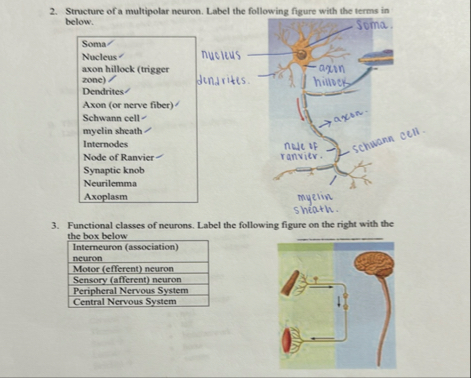 2. Structure of a multipolar neuron. Label the following figure with the terms in
below.
Soma
Nucleus
axon hillock (trigger
zone)
Dendrites
Axon (or nerve fiber)
Schwann cell
myelin sheath
Internodes
Node of Ranvier
Synaptic knob
Neurilemma
Axoplasm
Soma.
nucleus
dendrites.
axon
hillock
axon.
node of
ranvier.
schwann cell.
myelin
sheath.
3. Functional classes of neurons. Label the following figure on the right with the
the box below
Interneuron (association)
neuron
Motor (efferent) neuron
Sensory (afferent) neuron
Peripheral Nervous System
Central Nervous System